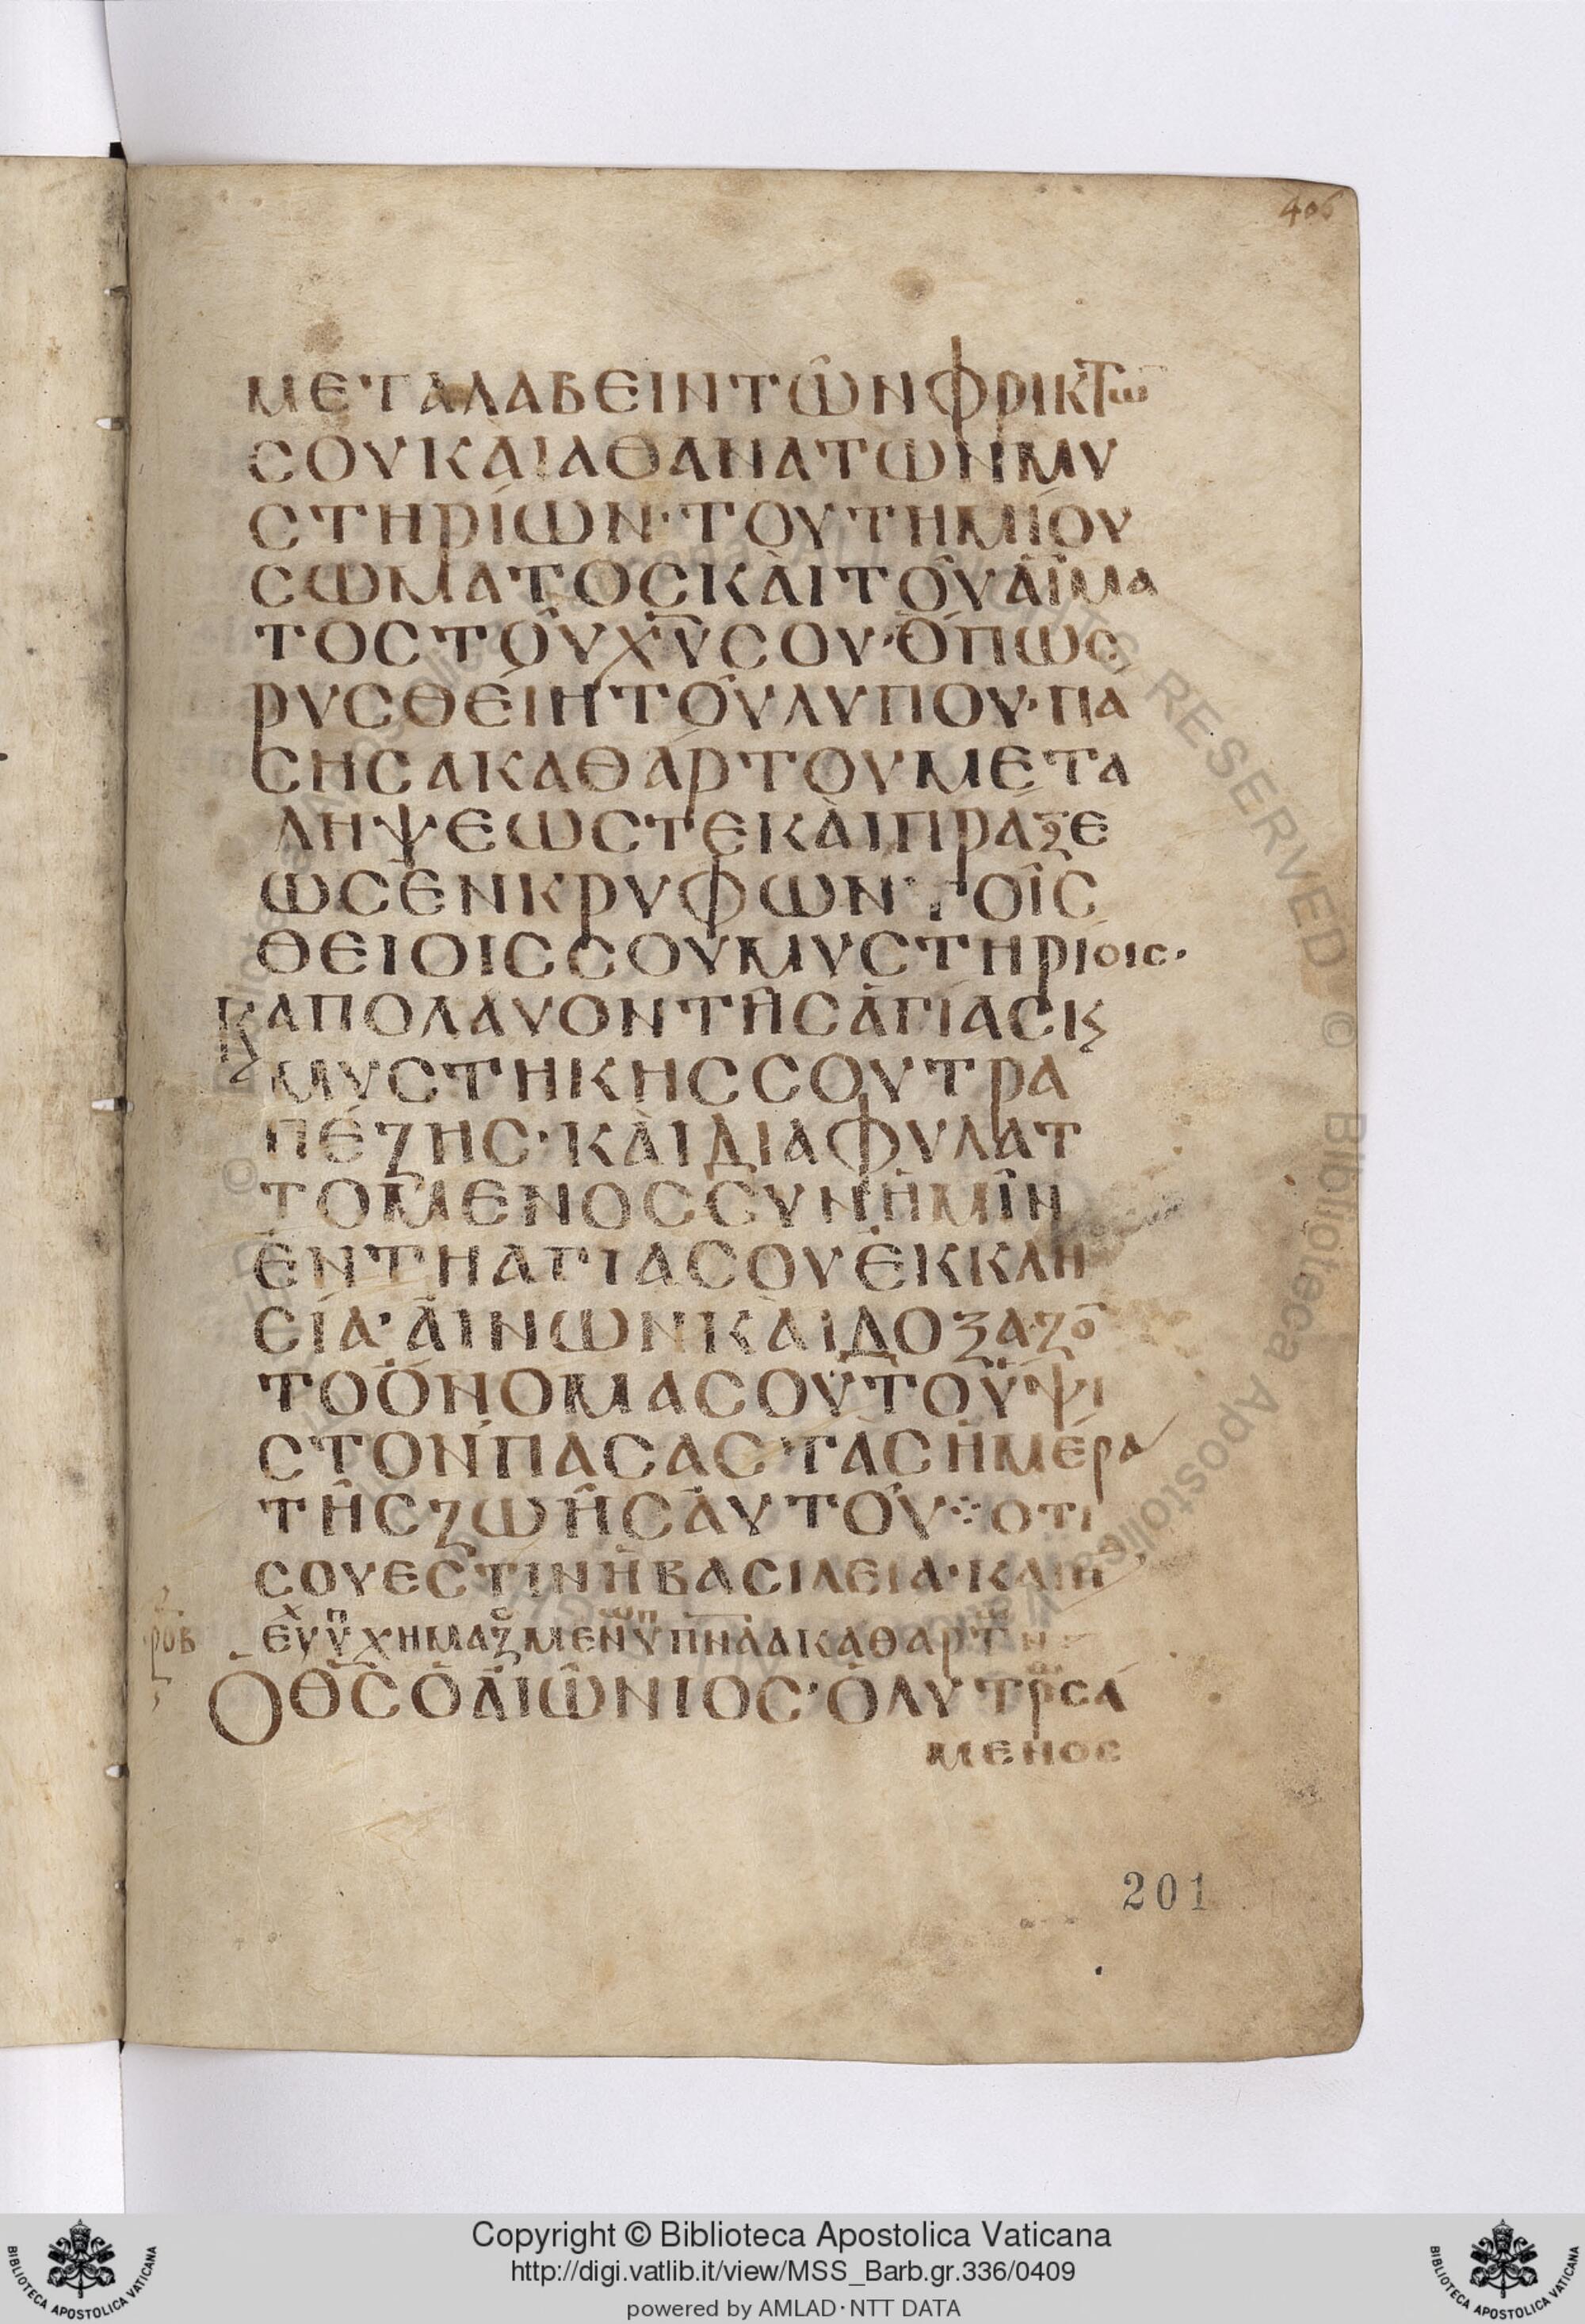 406
ΜΕΤΑΛΑΒΕΙΝΤῶΝΦΡΙΚΤω̅
ΣΟΥΚΑΙΑΘΑΝΑΤΩΝΜΥ
ΣΤΗΡΊΩΝ·ΤΟΥΤΗΜΊΟΥ
ΣΩΜΑΤΟΣΚΑῚΤΟΥ͂ΑἽΜΑ
ΤΟΣΤΟΥ͂Χ̅Υ̅ΣΟΥ·ὍΠΩΣ
ΡΥΣΘΕΊΗΤΟΥ͂ΛΥΠΟΥ·ΠΑ
ΣΗΣΑΚΑΘΆΡΤΟΥΜΕΤΑ
ΛΗΨΕΩΣΤΕΚΑῚΠΡΆΞΕ
ΩΣἘΝΚΡΥΦΩΝ·ΤΟΙ͂Σ
ΘΕΙΟΙΣΣΟΥΜΥΣΤΗΡΊΟΙΣ·
ϏΑΠΟΛΑΥΟΝΤΗ͂ΣἉΓΊΑΣϏ
ΜΥΣΤΗΚΗΣΣΟΥΤΡΑ
ΠΈΖΗΣ·ΚΑῚΔΙΑΦΥΛΑΤ
ΤΟΜΕΝΟΣΣΥΝΗΜΙ͂Ν
ἘΝΤΗΑΓΙΑΣΟΥἘΚΚΛΗ
ΣΊΑ·ΑἸΝΩΝΚΑῚΔΟΞΑΖΟ̅
ΤΟὌΝΟΜΑΣΟΥΤΟΫΨΙ
ΣΤΟΝΠΑΣΑΣ·ΤΑΣἩΜΈΡΑ
ΤΗ͂ΣΖΩΗ͂ΣΑΥΤΟΥ͂ΟΤΙ
ΣΟΥΕΣΤΙΝἩΒΑΣΙΛΕΙΑ·ΚΑΙΗ
ΡΟΒ
ὉΘ̅Σ̅ὉΑἸΏΝΙΟΣ·ὉΛΥΤΡΩΣΆ
ΜΕΝΟΣ
201
Copyright © Biblioteca Apostolica Vaticana
http://digi.vatlib.it/view/MSS_Barb.gr.336/0409
powered by AMLAD·NTT DATA
BIBLIOTECA APOSTOLICA VATICANA
BIBLIOTECA APOSTOLICA VATICANA